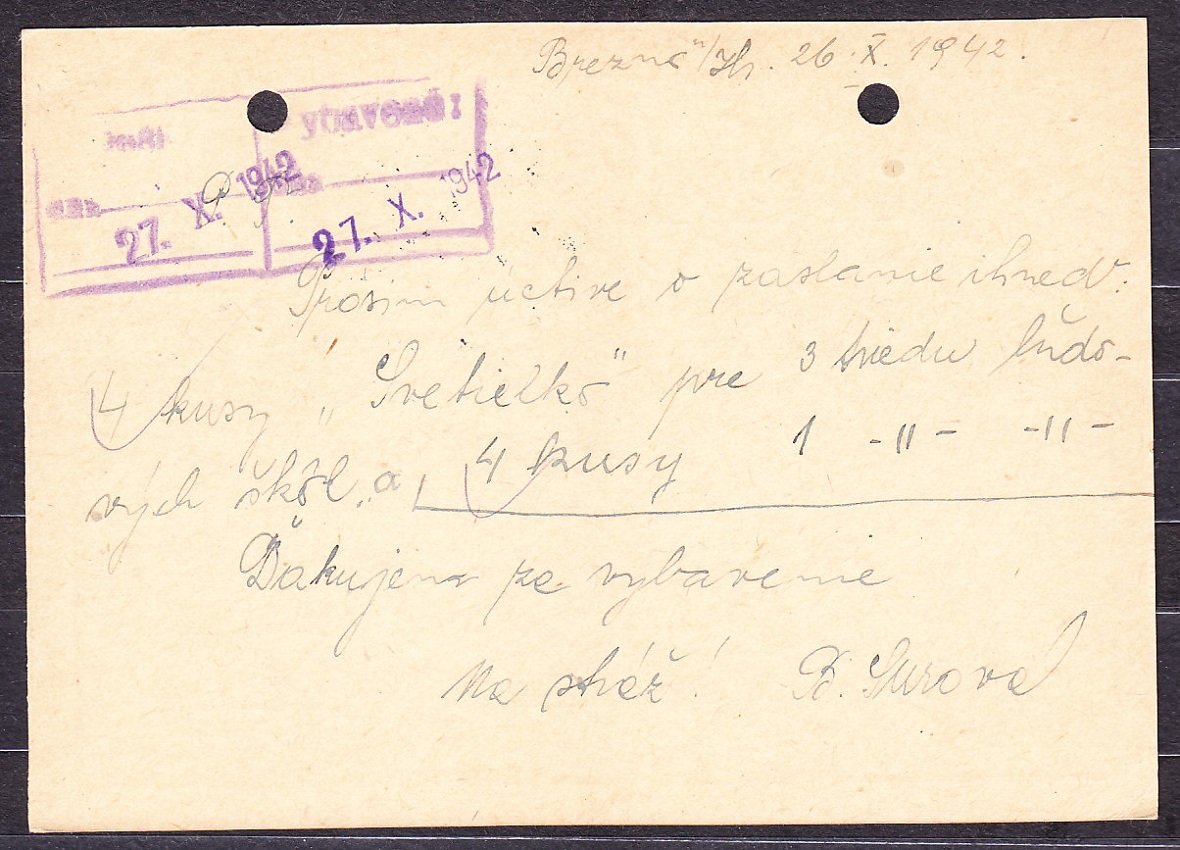 Brezno n/Hr. 26.X. 1942.
ybavené:
27. X. 1942
27. X. 1942
Prosím úctive o zaslanie ihneď:
4 kusy „Svetielko" pre 3 triedu ľudo-
vých škôl, a 4 kusy 1 -"- -"-
Ďakujem za vybavenie
Na stráž! B. Surová